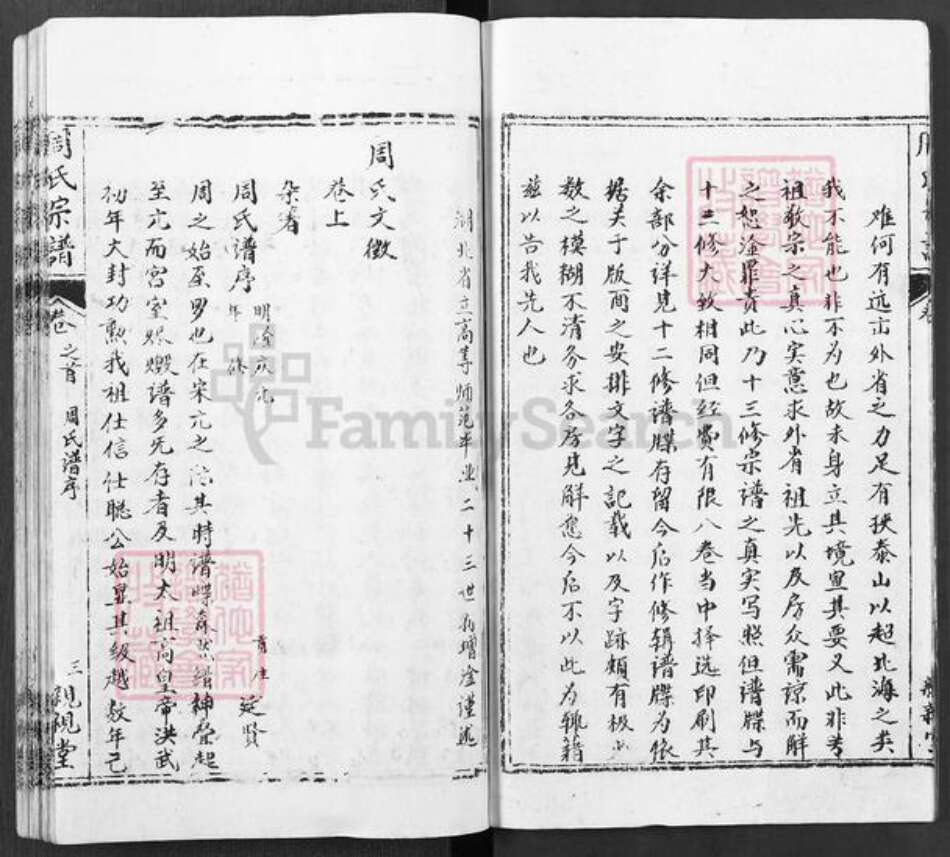 难何有远市外省之力足有挟泰山以超北海之类
我不能也非不为也故未身立其境岂其要又此非孝
祖敬宗之真心实意求外省祖先以及房众需谅而解
之恕淦罪责此乃十三修宗谱之真实写照但谱牒与
十二修大致相同但经费有限八卷当中择选印刷其
余部分详见十二修谱牒存留今后作修辑谱牒为依
据关于版面之安排文字之记载以及字跡颇有极少
数之模糊不清务求合房见解您今后不以此为
兹以告我先人也
湖北省立高等师范毕业二十三世孙增淦谨述
周氏文徵
卷上
杂著
周氏谱序
明隆庆
年修
廷贤
周之始至罗也在宋元之 其时谱牒 缙绅荣起
至元而宫室 煅谱多失存者及明太祖高皇帝洪武
初年大封功勲我祖仕信仕聪公始 其级越数年己
周氏宗谱
卷之首
周氏谱序
三
親視堂
FamilySearch